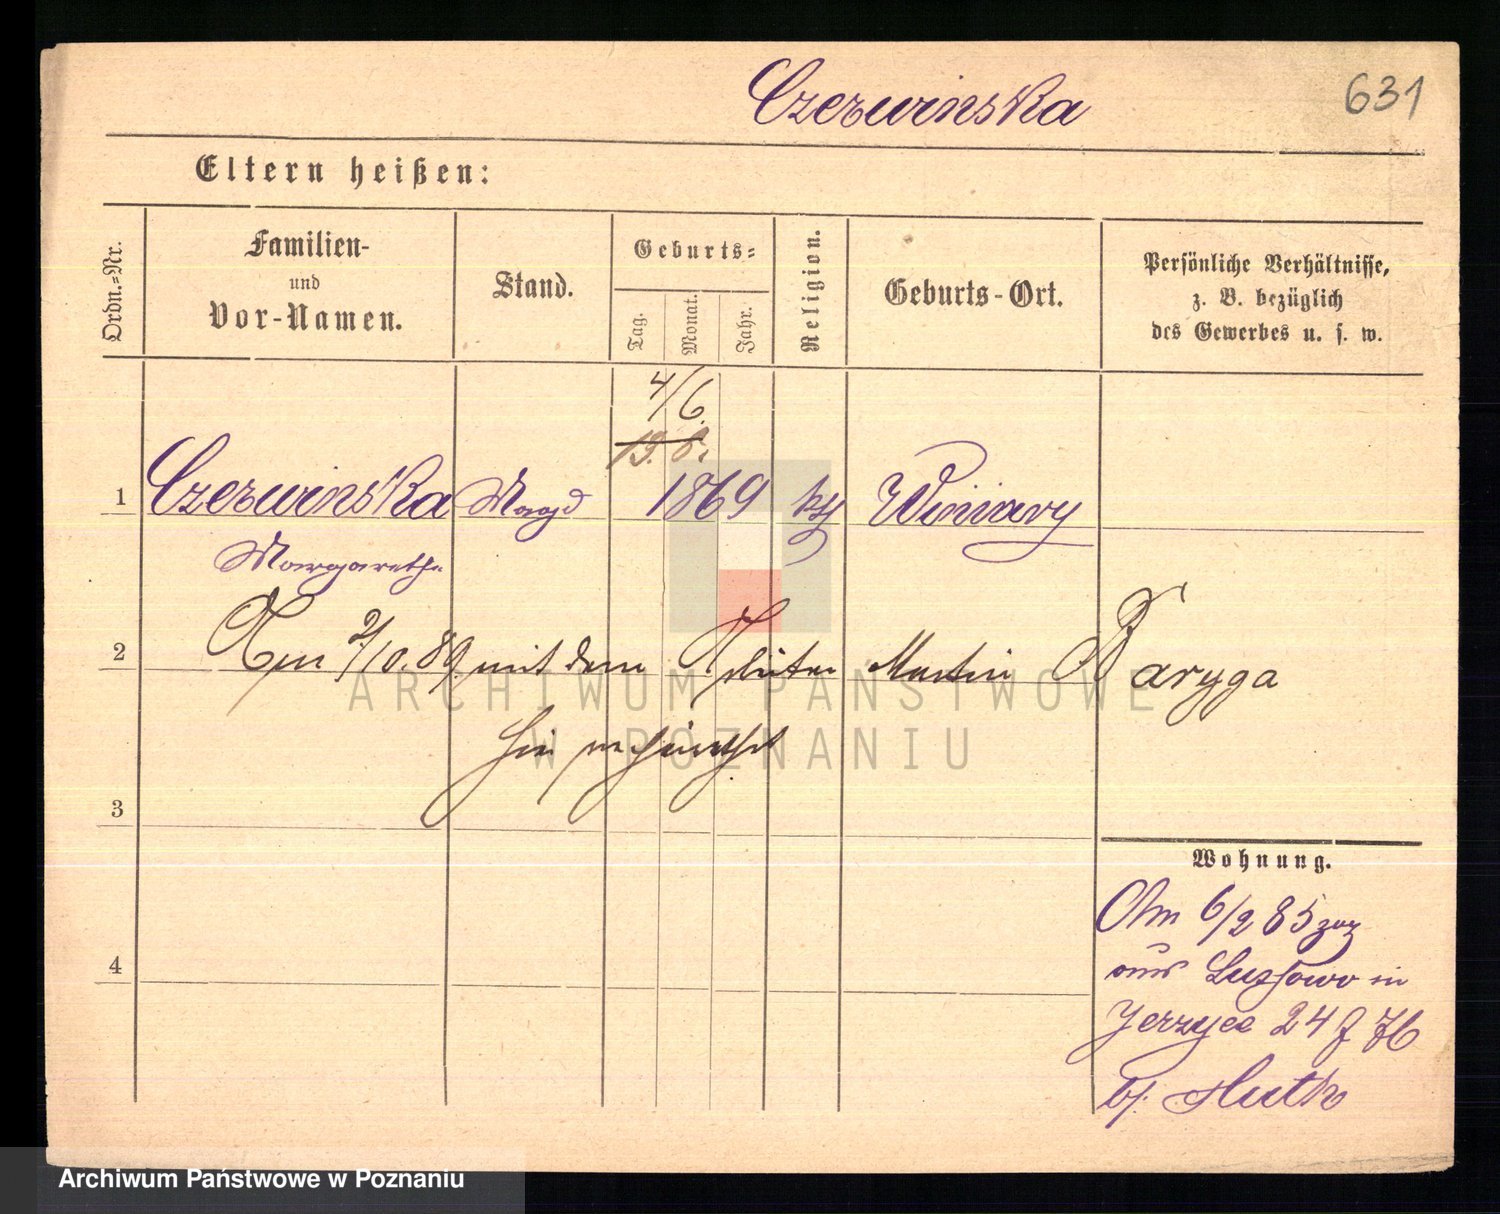 Czerwinska
631
Eltern heißen:
Ordn.-Nr.
Familien-
und
Vor-Namen.
Stand.
Geburts-
Tag.
Monat.
Jahr.
Religion.
Geburts-Ort.
Persönliche Verhältnisse,
z. B. bezüglich
des Gewerbes u. s. w.
4/6.
13. 8.
1 Czerwinska Magd 1869 kth Winiary
Margareth
2 Am 2/10. 89. mit dem Martin Baryga
hier verheirathet
3
Wohnung.
Am 6/2 85 zuz
aus Lussowo in
4
Jerzyce 24
bj. Huth
ARCHIWUM PAŃSTWOWE
W POZNANIU
Archiwum Państwowe w Poznaniu